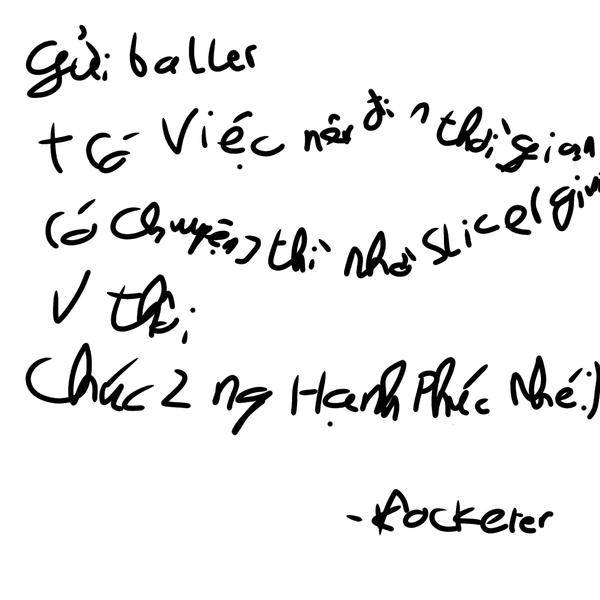 Gửi baller
t có việc nên đi n thời gian
có chuyện thì nhờ slicer giúp
V thôi
Chúc 2 ng Hạnh Phúc Nhé:)
-Rocketer